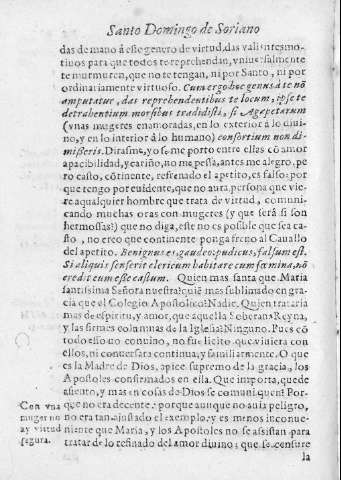 Santo Domingo de Soriano
das de mano à este genero de virtud, das valientes mo-
tiuos para que todos te reprehendan, vniuersalmente
te murmuren, que no te tengan, ni por Santo, ni por
ordinariamente virtuoso. Cum ergo hoc genus à te nõ
amputatur, das reprehendentibus te locum, ipse te
detrahentium morsibus tradidisti, si Agapetarum
(vnas mugeres enamoradas, en lo exterior à lo diui-
no, y en lo interior à lo humano) consortium non di-
miseris. Dirasme, yo se me porto entre ellas cõ amor
apacibilidad, y cariño, no me pesa, antes me alegro, pe
ro casto, cõtinente, refrenado el apetito, es falso: por
que tengo por euidente, que no aura persona que vie-
re aqualquier hombre que trata de virtud, comuni-
cando muchas oras con mugeres (y que serà si son
hermosas?) que no diga, este no es posible que sea ca-
sto, no creo que continente ponga freno al Cauallo
del apetito. Benignus es, gaudeo: pudicus, falsum est.
Si aliquis senserit clericum habitare cum fœmina, nõ
credit eum esse castum. Quien mas santa que Maria
santissima Señora nuestra? quiẽ mas sublimado en gra
cia que el Colegio Apostolico? Nadie. Quien trataria
mas de espiritu, y amor, que aquella Soberana Reyna,
y las firmes columnas de la Iglesia? Ninguno. Pues cõ
todo esso no conuino, no fue licito que viuiera con
ellos, ni conuersara continua, y familiarmente. O que
es la Madre de Dios, apice supremo de la gracia, los
Apostoles confirmados en ella. Que importa, quede
assiento, y mas en cosas de Dios se comuniquen? Por-
que no era decente: porque aunque no auia peligro,
no era tan ajustado el exemplo: y es menos inconue-
niente que Maria, y los Apostoles no se assistan para
tratar de lo refinado del amor diuino; que se censure
la
Con vna
muger no
ay virtud
segura.